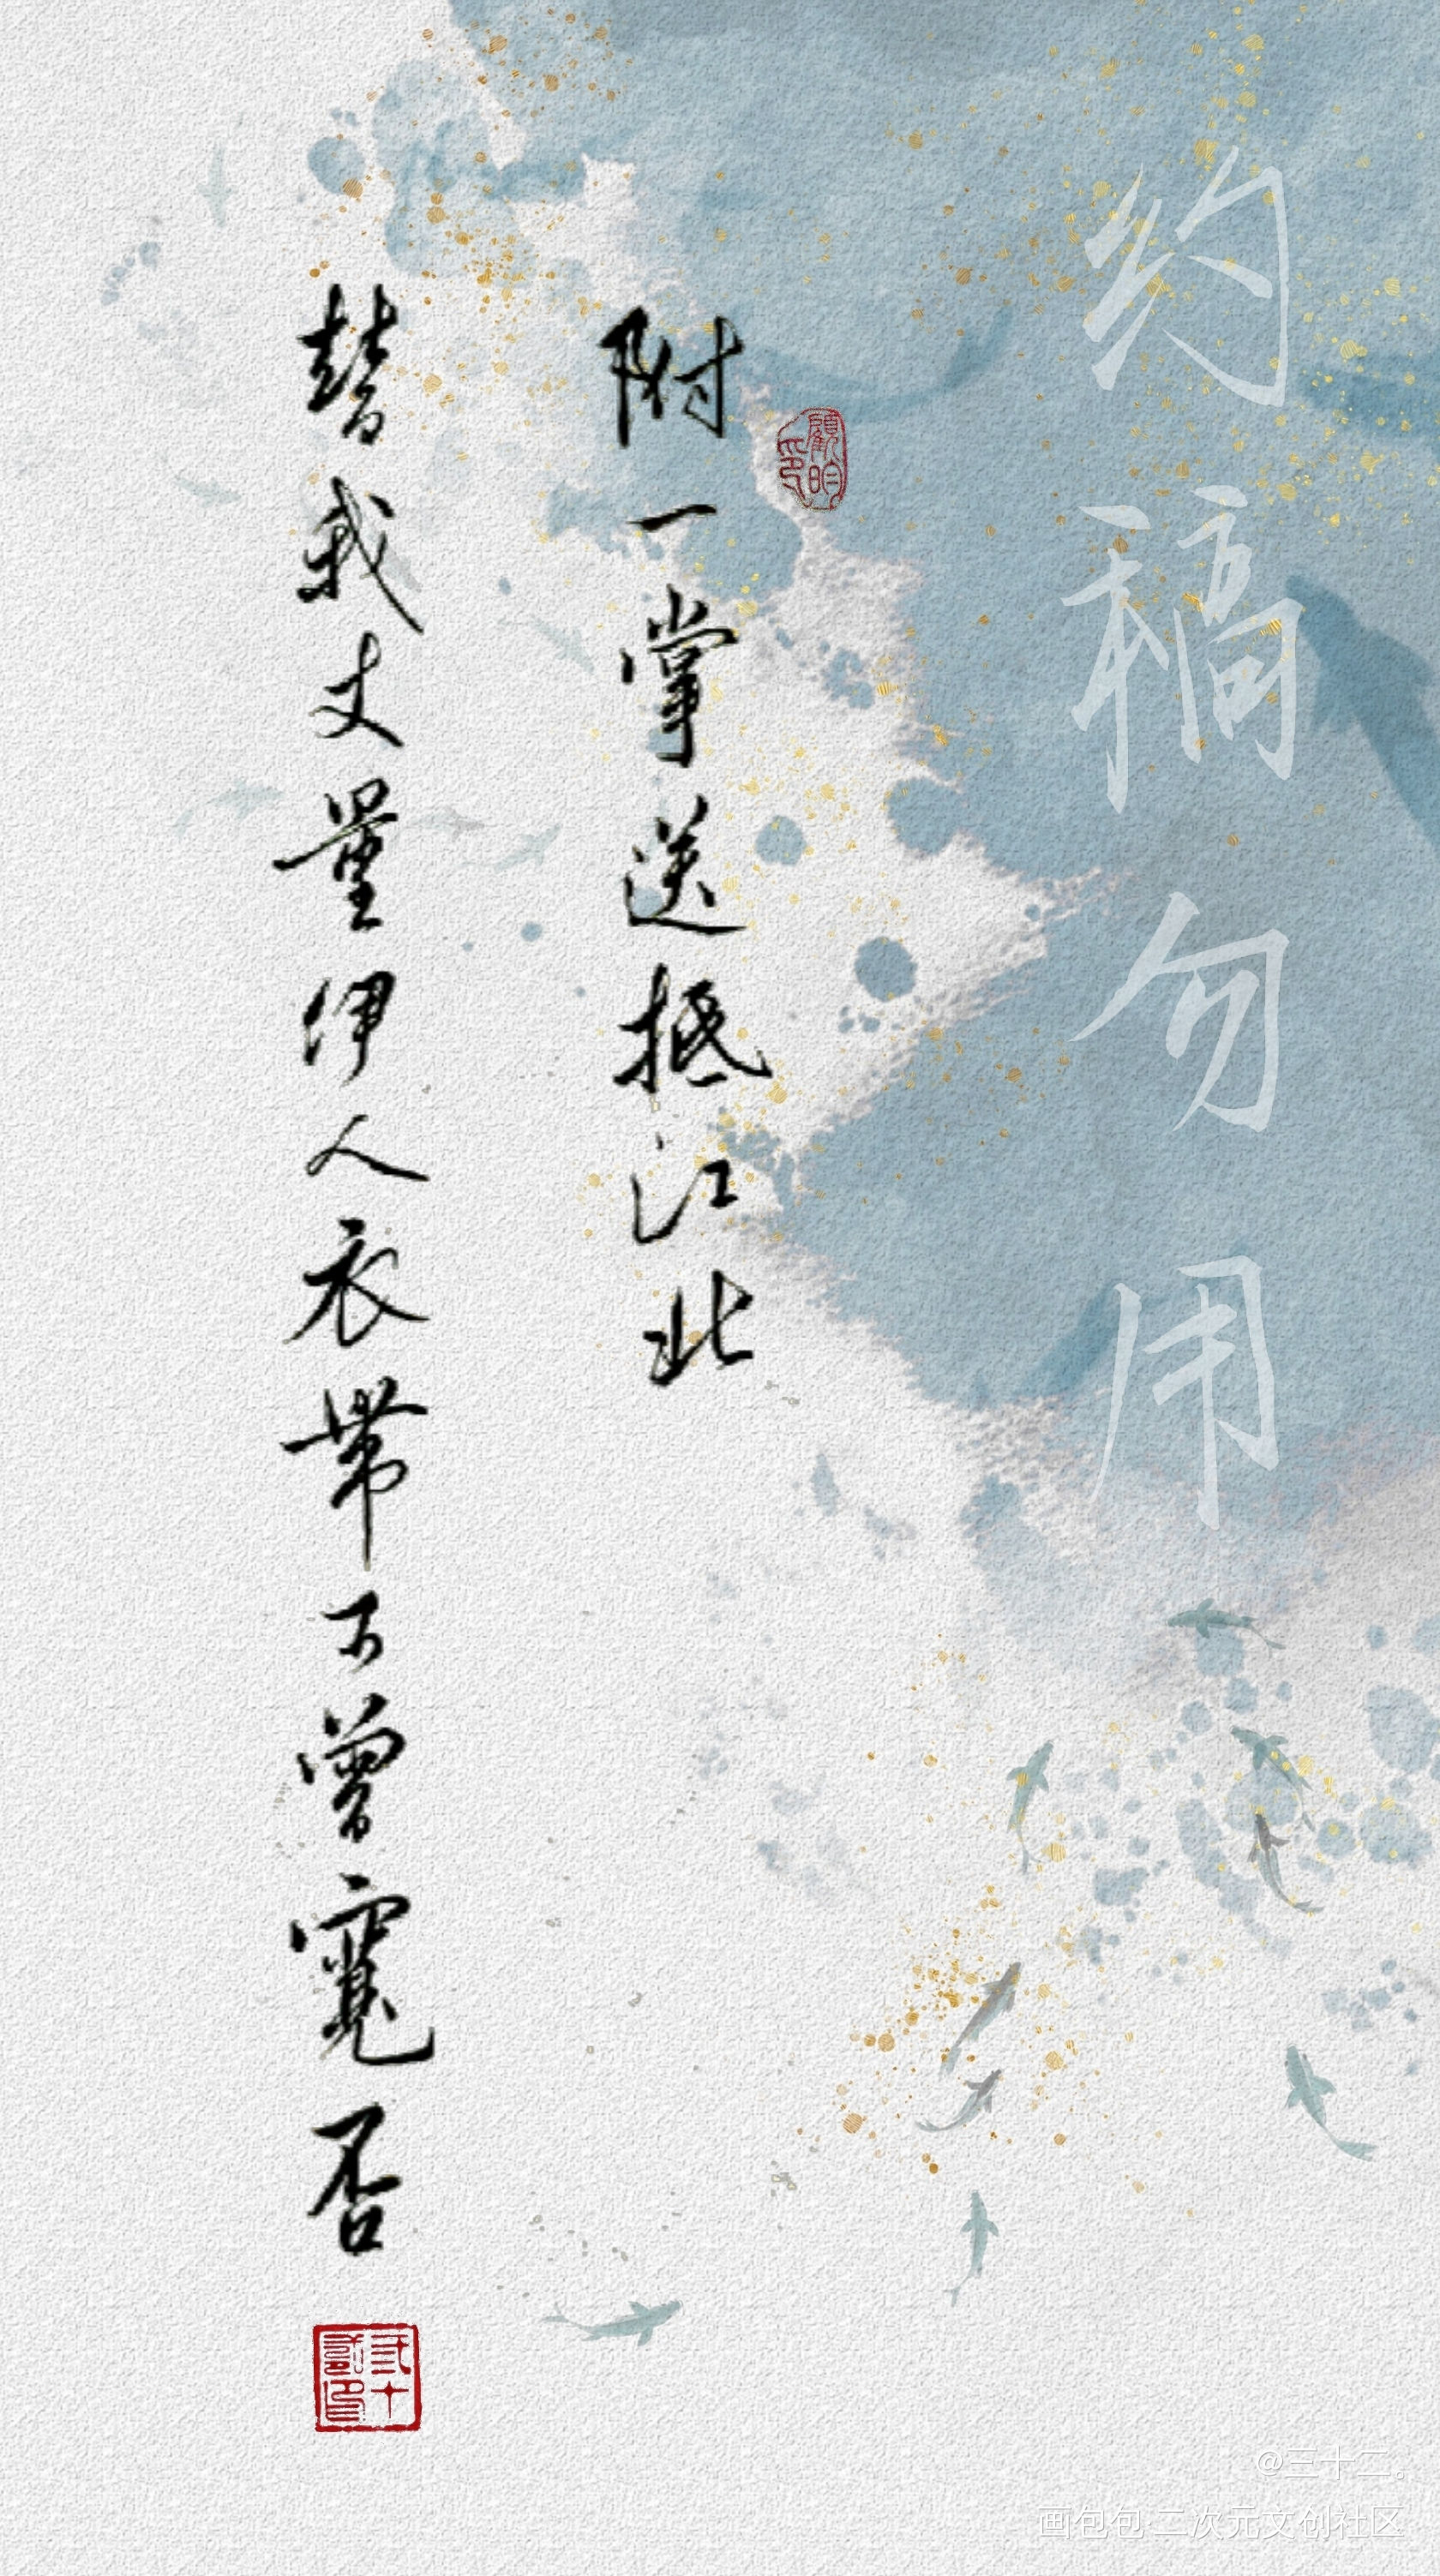 约稿勿用
附一掌送抵江北
替我丈量伊人衣带可曾宽否
@三十二。
画包包·二次元文创社区